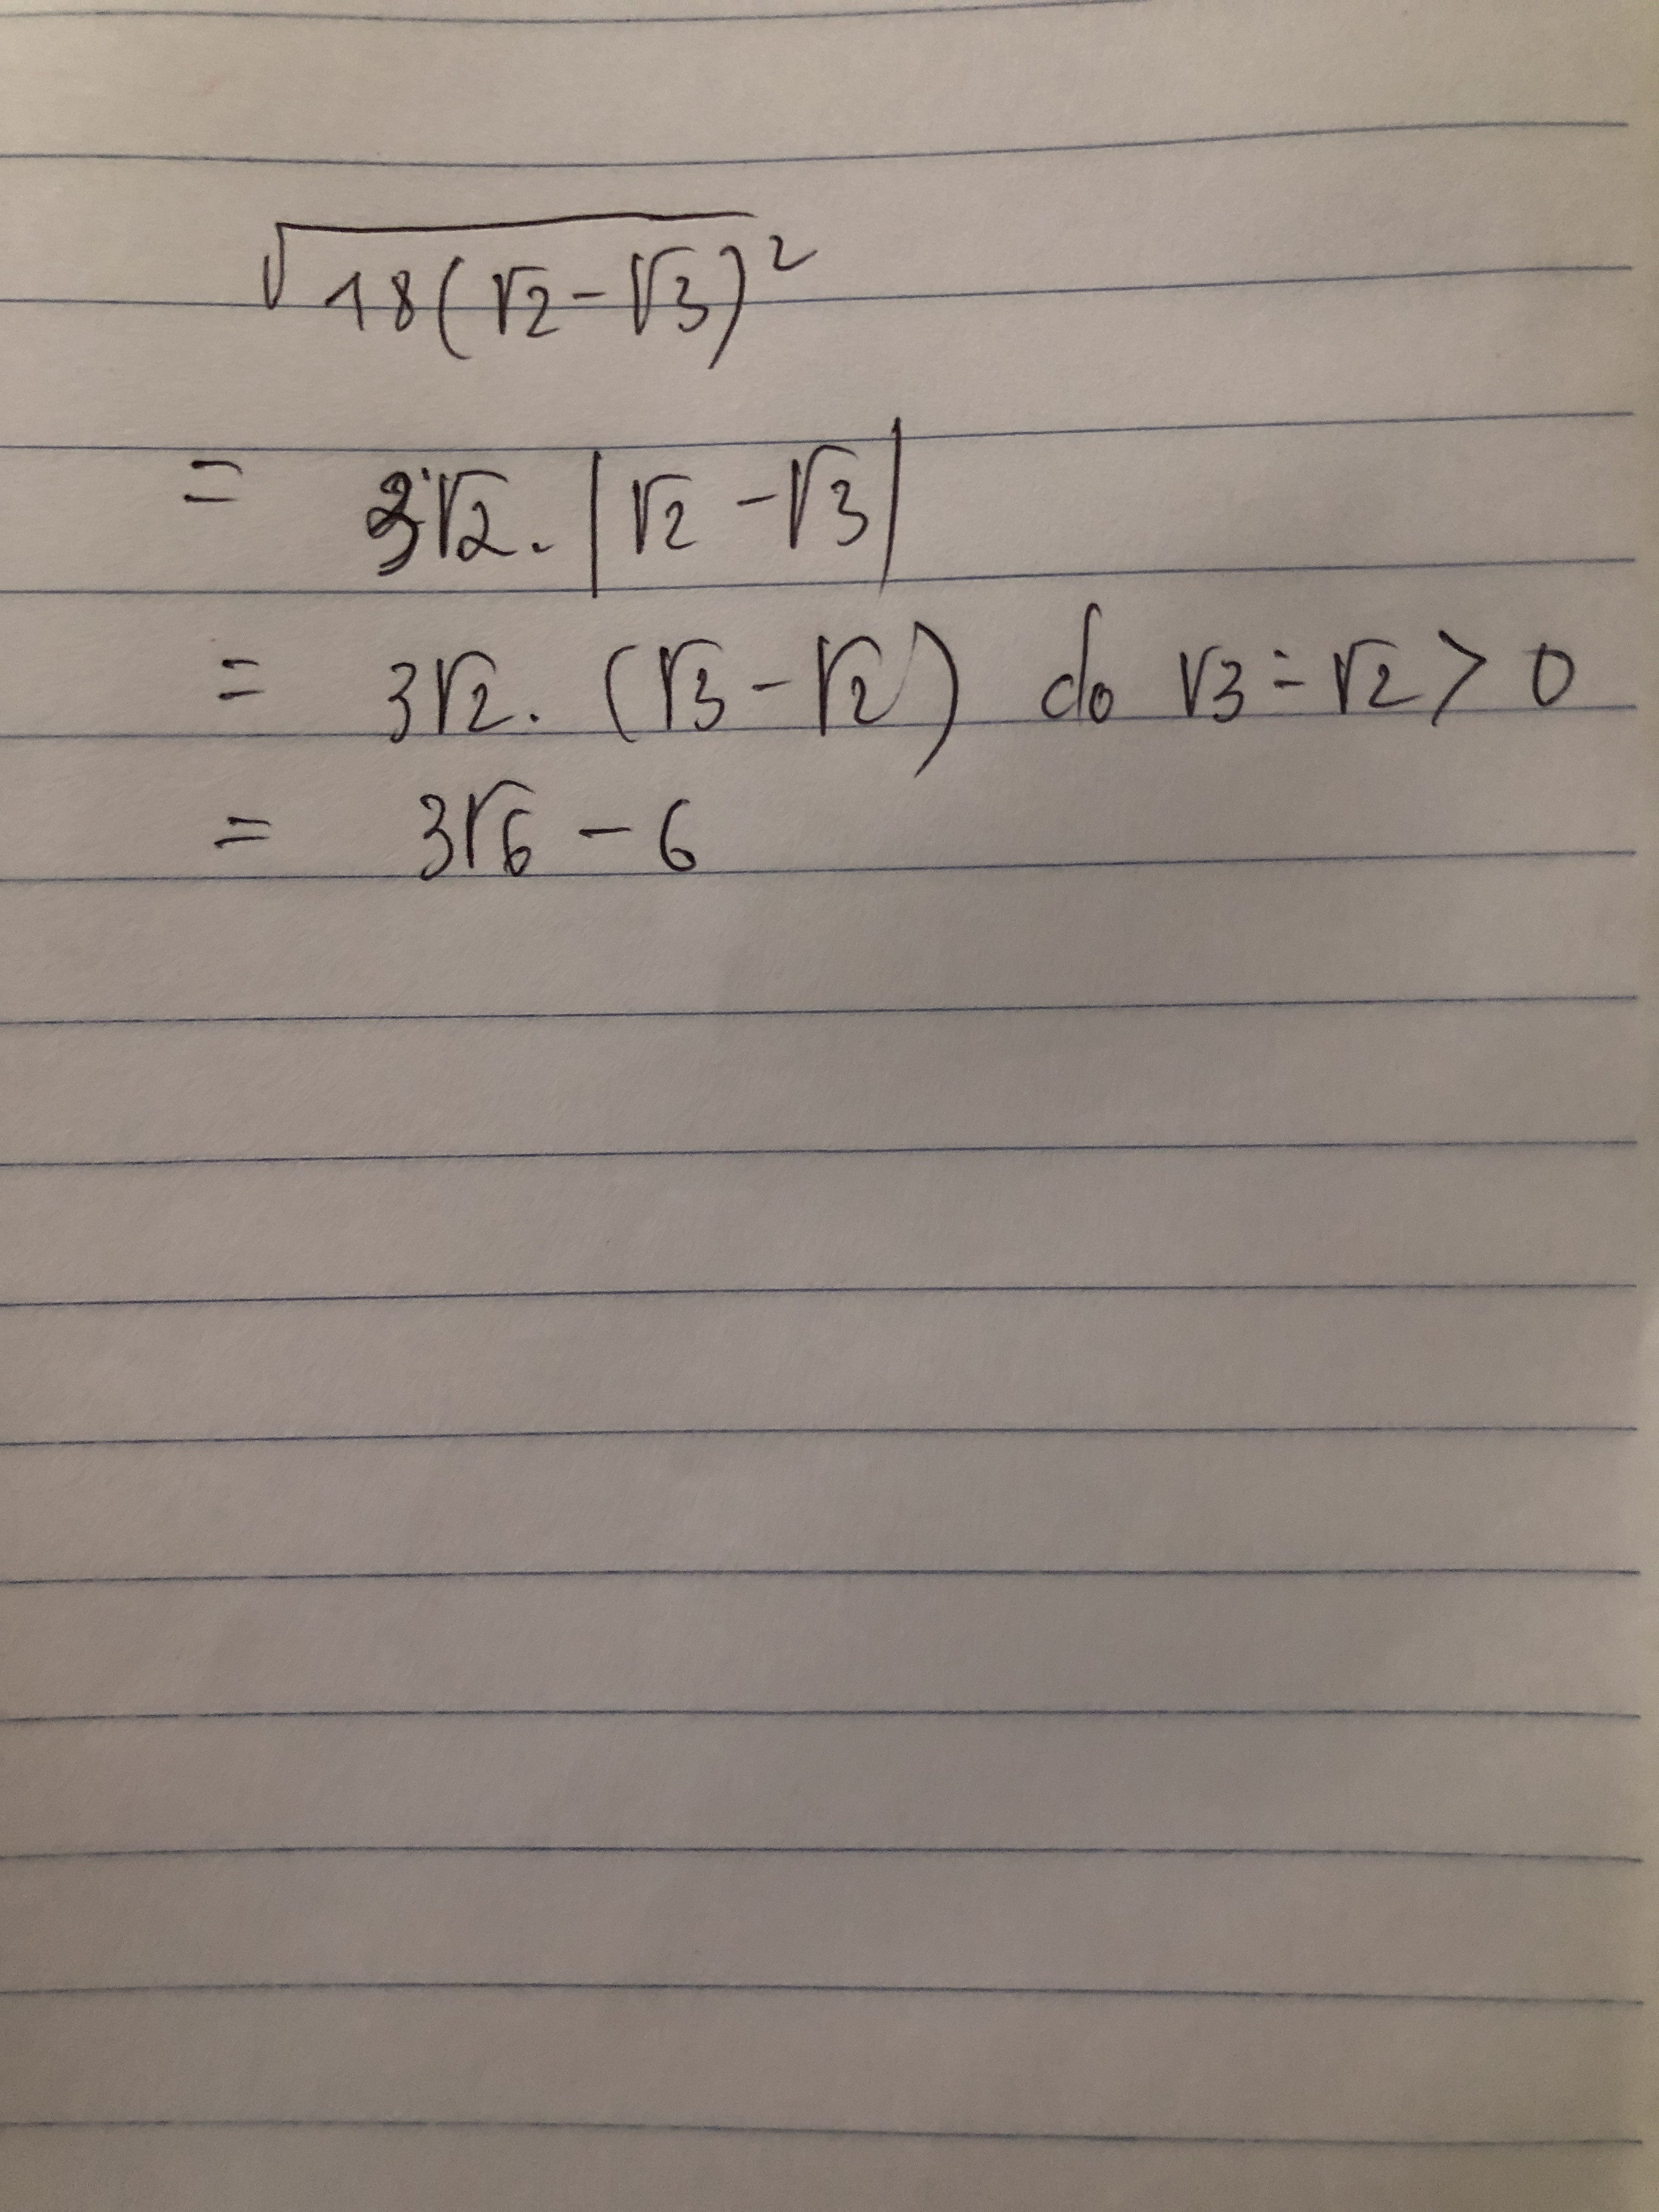 √18(√2-√3)²
= 3√2.|√2-√3|
= 3√2.(√3-√2) do √3-√2>0
= 3√6-6